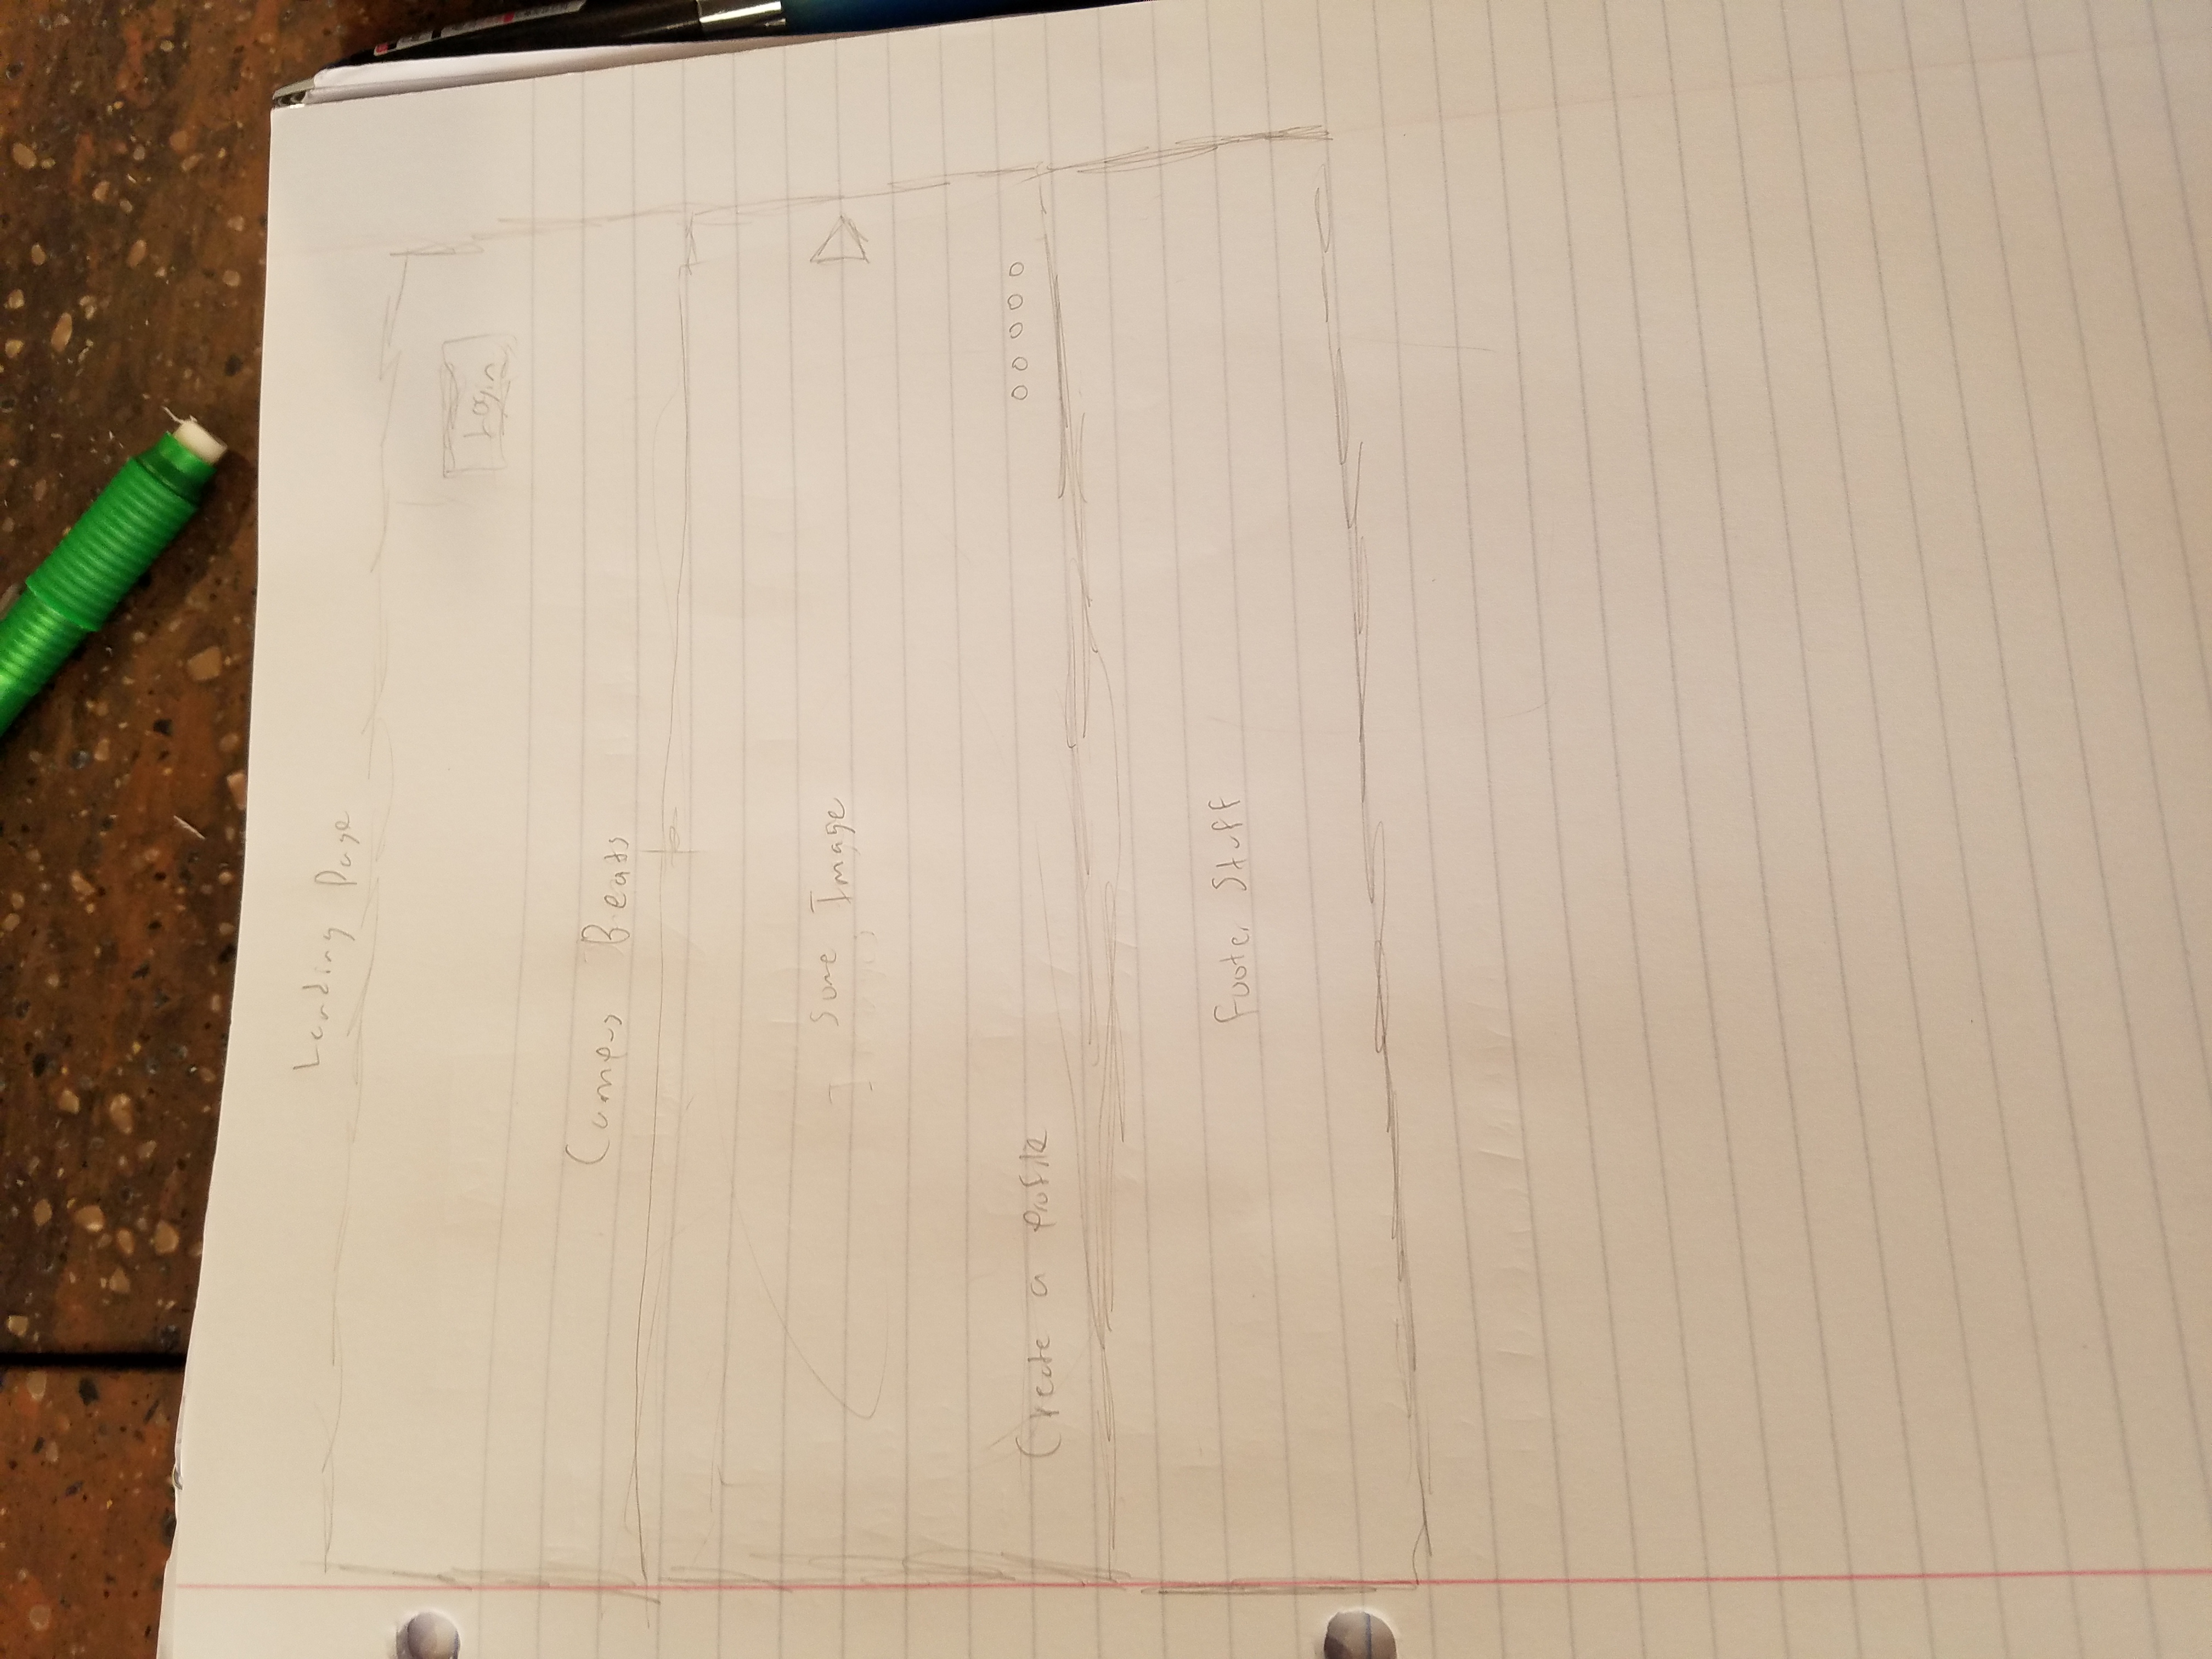 Landing Page
Login
Campus Beats
Some Image
Create a Profile
Footer Stuff